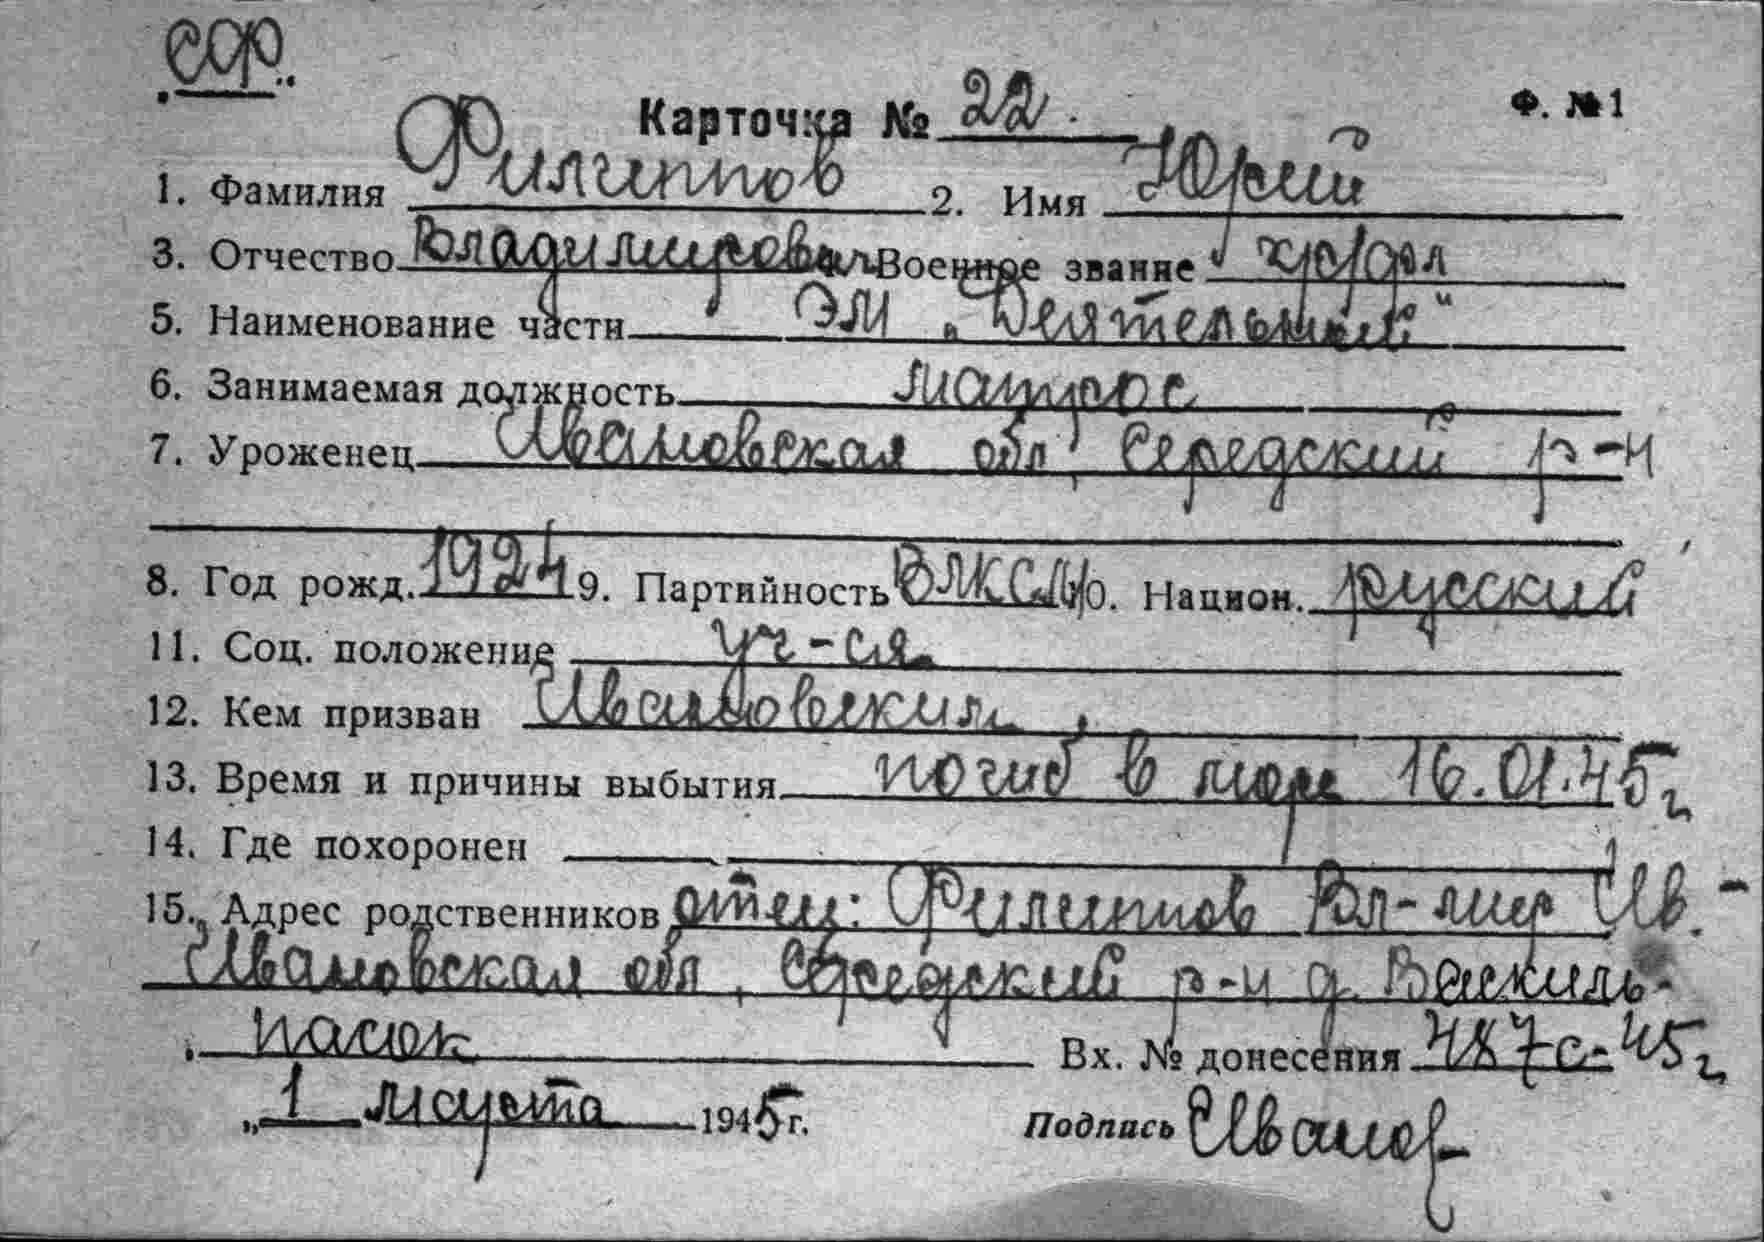 сор.
Карточка № 22. Ф. № 1
1. Фамилия Филиппов 2. Имя Юрий
3. Отчество Владимирович Военное звание кр/фл
5. Наименование части ЭМ „Деятельный“
6. Занимаемая должность матрос
7. Уроженец Ивановская обл, Середский р-н
8. Год рожд. 1924 9. Партийность ВЛКСМ 10. Национ. русский
11. Соц. положение уч-ся
12. Кем призван Ивановским
13. Время и причины выбытия погиб в море 16.01.45г
14. Где похоронен
15. Адрес родственников отец: Филиппов Вл-мир Ив.-
Ивановская обл, Середский р-н д.
Вх. № донесения 487с-45г
„1 марта 1945г.
Подпись Иванов